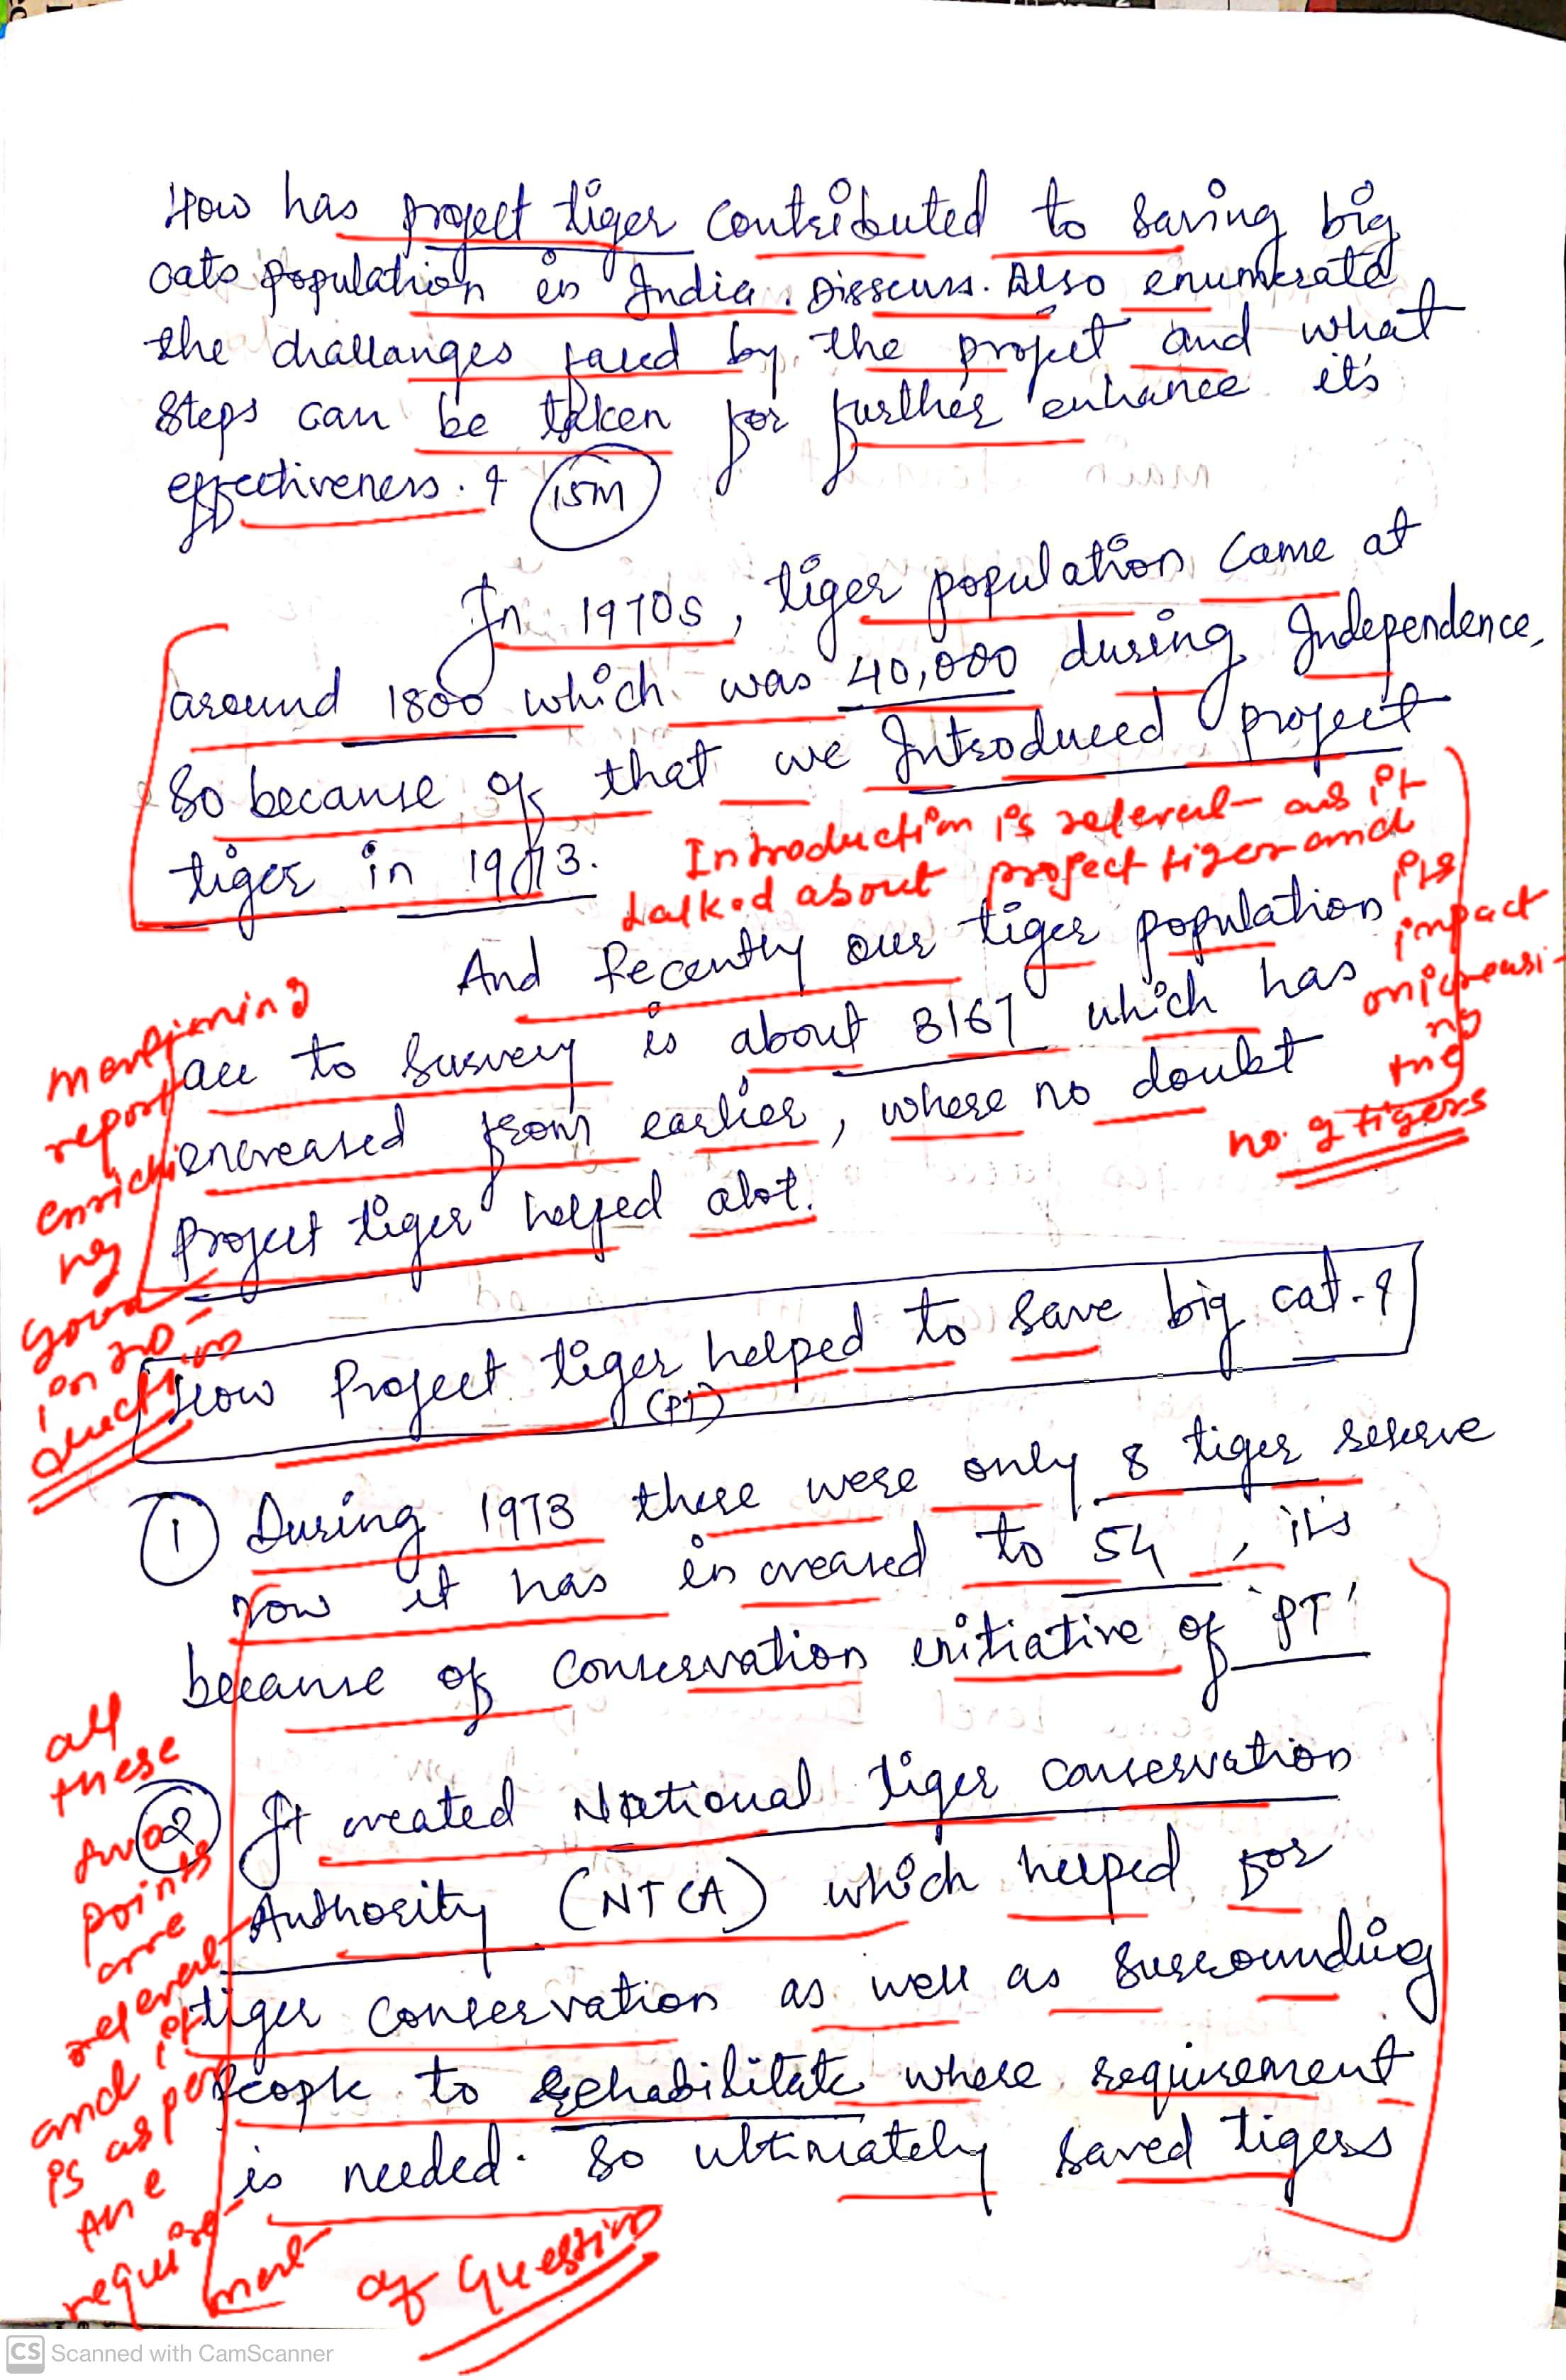 How has project tiger contributed to saving big
cats population in India. Disscuss. Also enumerate
the challanges faced by the project and what
steps can be taken for further enhance it's
effectiveness. ? 15m
In 1970s, tiger population came at
around 1800 which was 40,000 during Independence,
So because of that we Introduced project
tiger in 1973.
Introduction is relevent as it
talked about project tiger and
its
impact
on increasi-
ng
the
no. of tigers
And Recently our tiger population
acc to survey is about 3167 which has
increased from earlier, where no doubt
Project tiger helped alot.
mentioning
report
enrichi
ng
your
intro-
duction
How Project tiger helped to save big cat. ?
(PT)
① During 1973 there were only 8 tiger reserve
now it has increased to 54, it's
because of conservation initiative of 'PT'
② It created National tiger conservation
Authority (NTCA) which helped for
tiger conservation as well as surrounding
people to rehabilitate where requirement
is needed. So ultimately saved tigers
all
these
two
points
are
relevent
and it
is as per
the
require-
ment
of question
CS Scanned with CamScanner